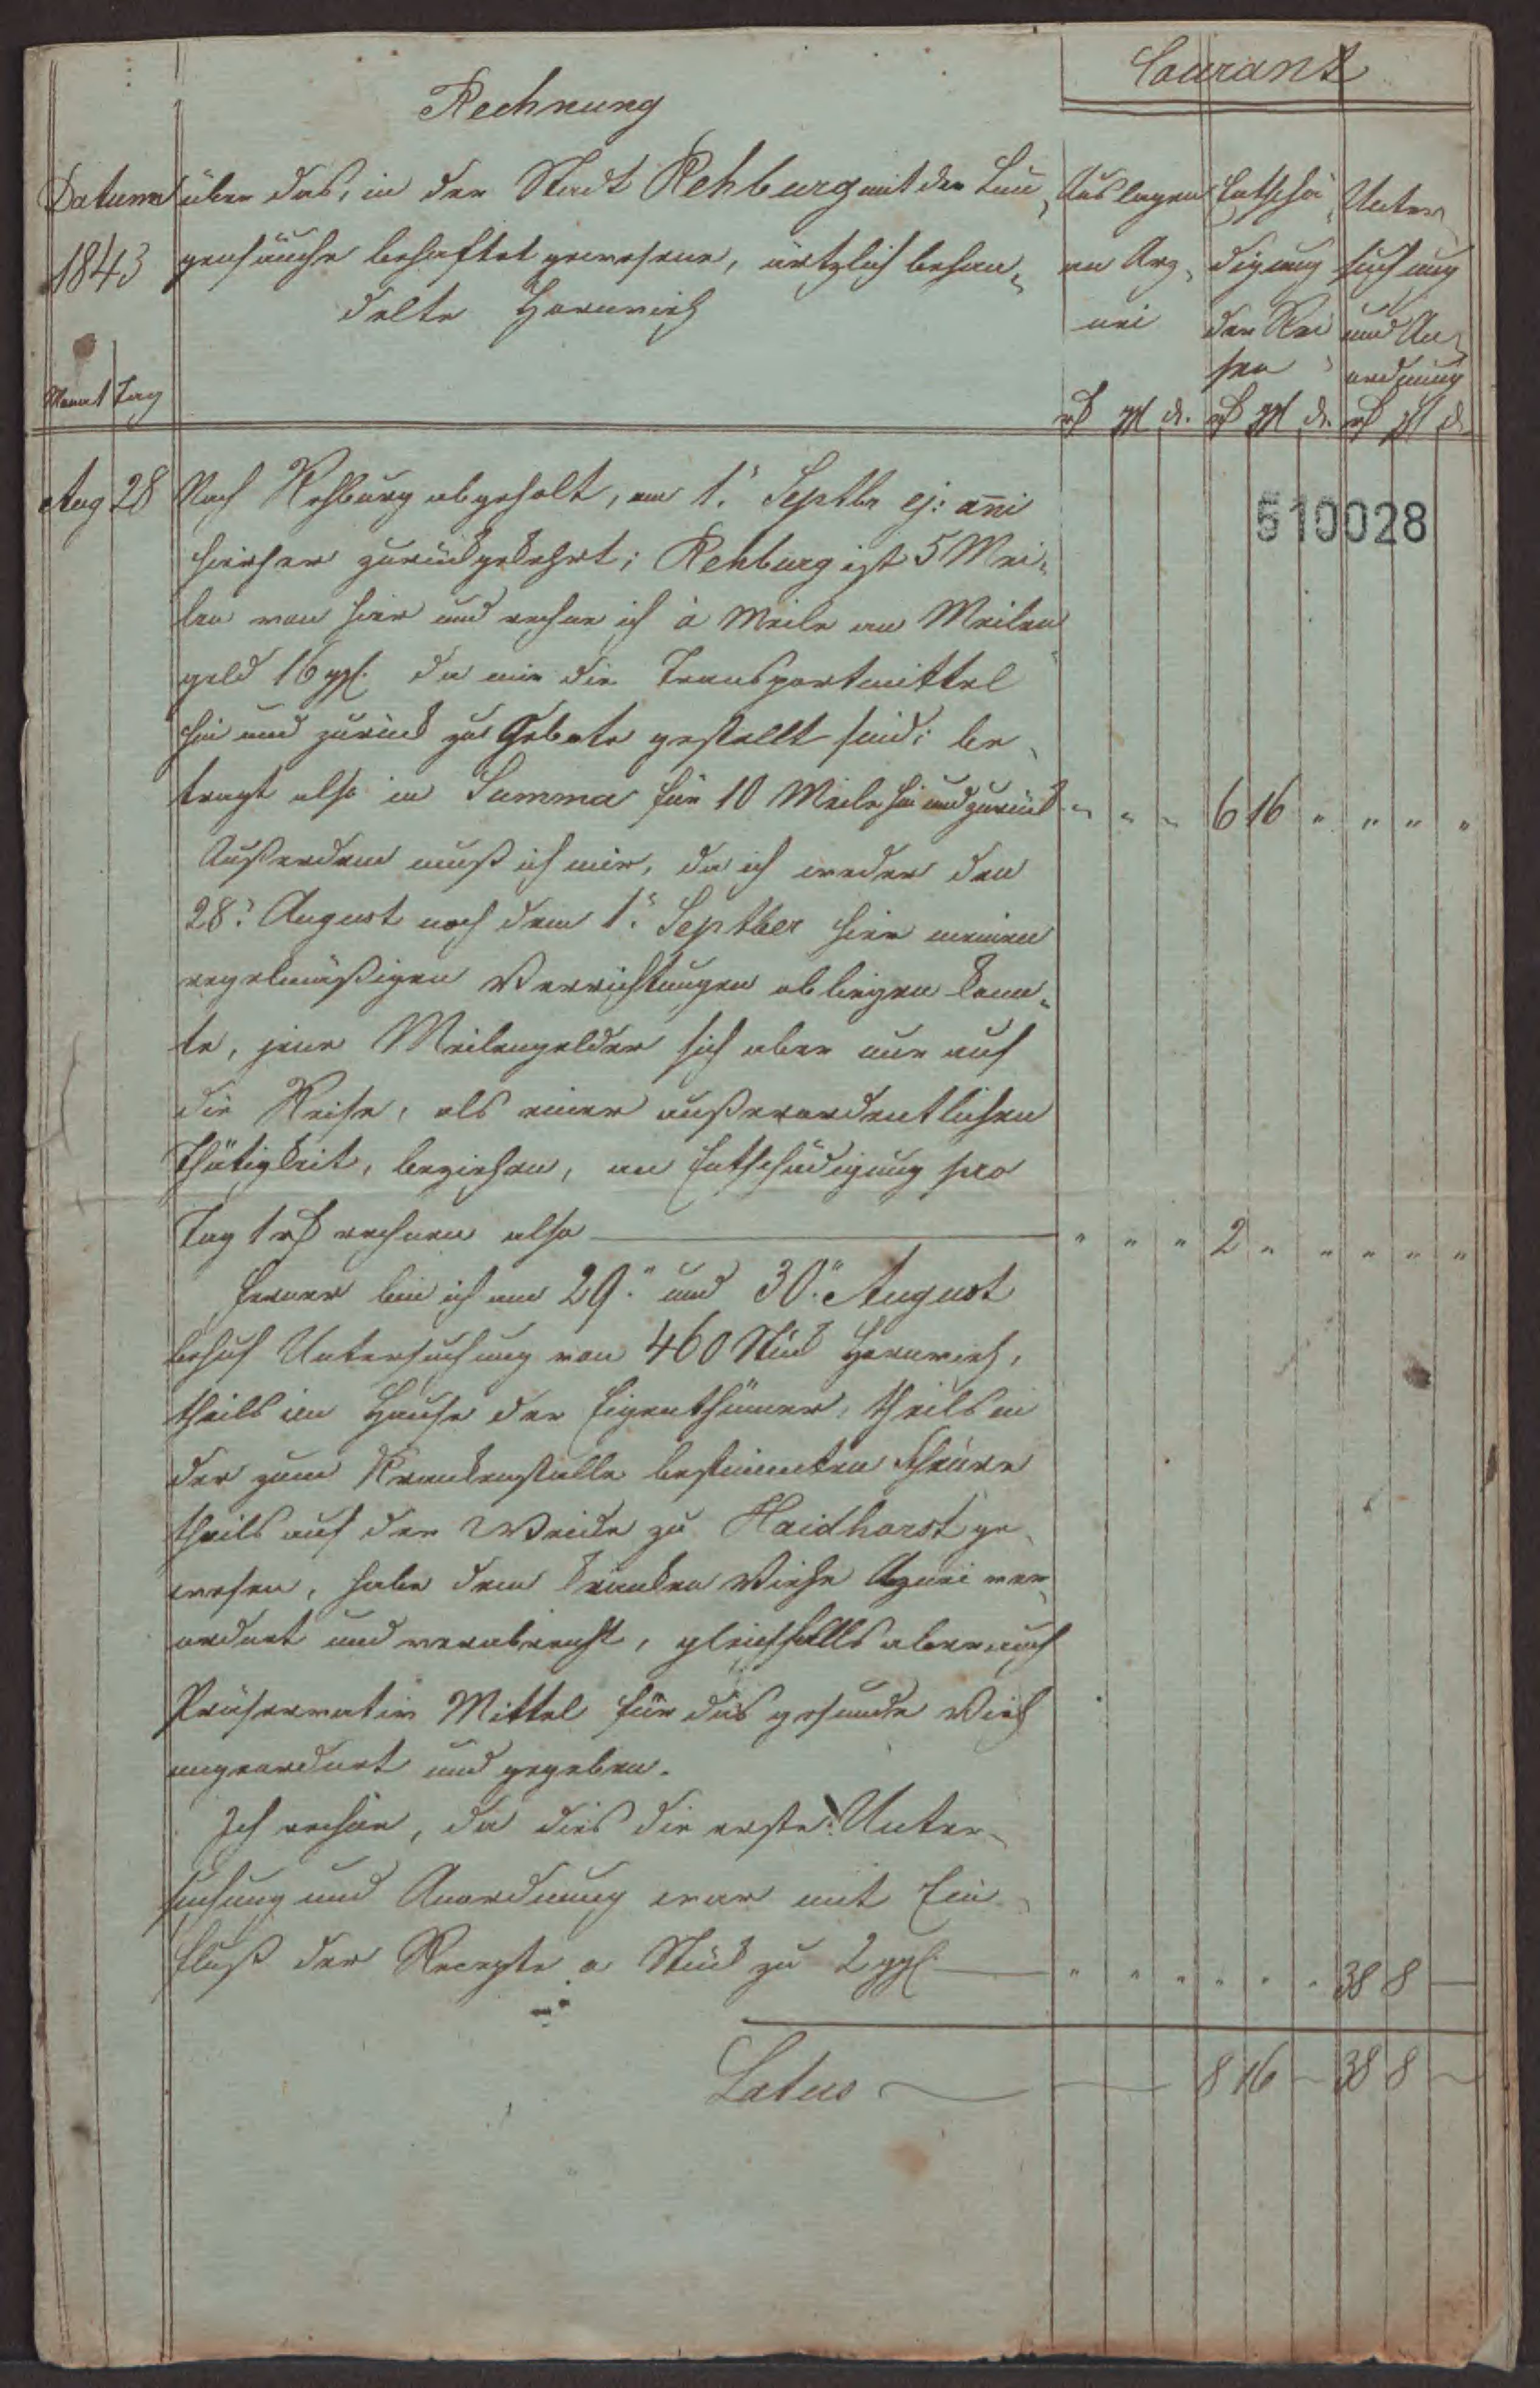 Courant
Rechnung
Datum über das, in der Stadt Rehburg mit der Lun- Auslagen Entschä- Unter-
1843 genseuche behaftet gewesene, ärtzlich behan- an Arz- digung suchung
delte Hornvieh nei der Rei- und An-
se ordnung
Monat Tag
rß ggl d. rß ggl d. rß ggl d.
510028
Aug 28 Nach Rehburg abgeholt, am 1. Septbr ej: ani
hierher zurückgekehrt; Rehburg ist 5 Mei-
len von hier und rechne ich à Meile an Meilen
geld 16 ggl. da mir die Transportmittel
hin und zurück zu Gebote gestellt sind; be-
tragt also in Summa für 10 Meile hin und zurück " " " 6 16 " " " "
Außerdem muß ich mir, da ich weder den
28. August noch dem 1. Septber hier meinen
regelmäßigen Verrichtungen obliegen konn-
te, jene Meilengelder sich aber nur auf
die Reise, als einer außerordentlichen
Thätigkeit, beziehen, an Entschädigung pro
Tag 1 rß rechnen also " " " 2 " " " " "
Ferner bin ich am 29. und 30. August
behuf Untersuchung von 460 Stück Hornvieh,
theils im Hause der Eigenthümer, theils in
der zum Krankenstalle bestimmten Scheure
theils auf der Weide zu Haidhorst ge-
wesen, habe dem kranken Viehe Arznei ver-
ordnet und verabreicht, gleichfalls aber auch
Präservativ Mittel für das gesunde Vieh
angeordnet und gegeben.
Ich rechne, da dies die erste Unter-
suchung und Anordnung war mit Ein-
schluß der Recepte a Stück zu 2 ggl. " " " " " " 38 8 —
Latus — 8 16 — 38 8 —